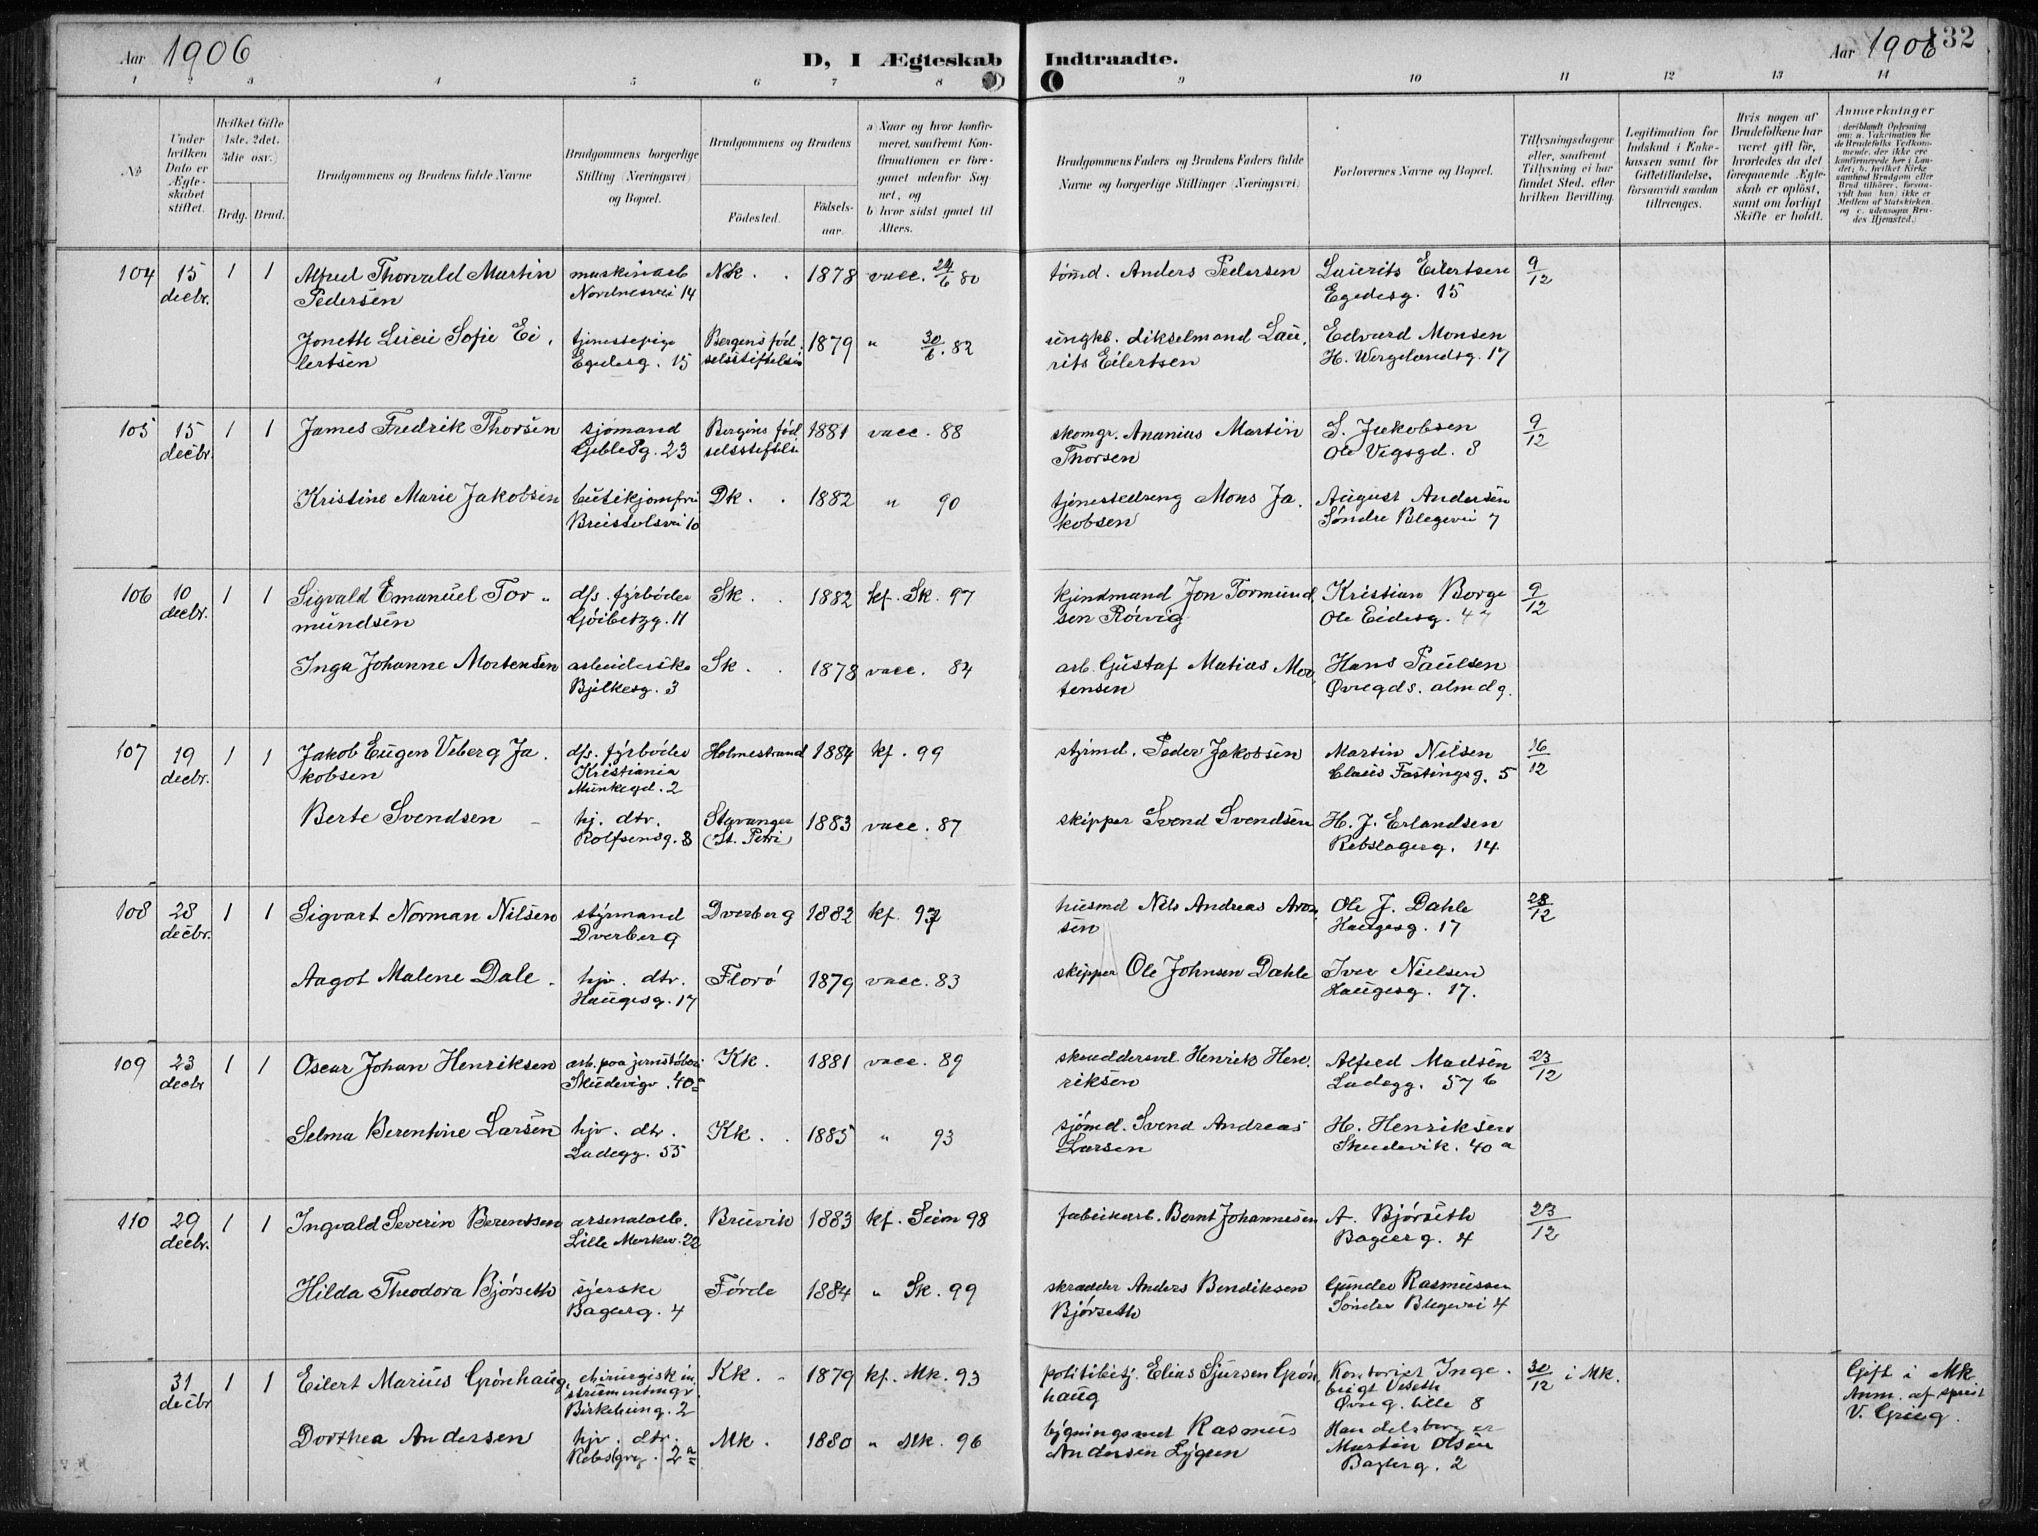 Aar 1906
D, I Ægteskab Indtraadte.
Aar 1906
132
1 2 3 4 5 6 7 8 9 10 11 12 13 14
No
Under hvilken Dato er Ægteskabet stiftet.
Hvilket Gifte (1ste, 2det, 3die osv.)
Brdg. Brud.
Brudgommens og Brudens fulde Navne
Brudgommens borgerlige Stilling (Næringsvei) og Bopæl.
Brudgommens og Brudens
Födested.
Födsels-aar.
a) Naar og hvor konfirmeret, saafremt Konfirmationen er foregaaet udenfor Sognet, og
b) hvor sidst gaaet til Alters.
Brudgommens Faders og Brudens Faders fulde Navne og borgerlige Stillinger (Næringsvei)
Forlovernes Navne og Bopæl.
Tillysningsdagene eller, saafremt Tillysning ei har fundet Sted, efter hvilken Bevilling.
Legitimation for Indskud i Enkekassen samt for Giftetilladelse, forsaavidt saadan tiltrænges.
Hvis nogen af Brudefolkene har været gift för, hvorledes da det foregaaende Ægteskab er oplöst, samt om lovligt Skifte er holdt.
Anmærkninger
104 15 decbr. 1 1 Alfred Thorvald Martin Pedersen
maskinarb Nordnesvei 14
Nk. 1878 vacc. 24/6 80
tømd. Anders Pedersen
Laurits Eilertsen Egedesg. 15
9/12
Jonette Lucie Sofie Eilertsen
tjenestepige Egedesg. 15
Bergens fødselsstiftelse 1879 " 30/6. 82
ungkl. dikselmand Laurits Eilertsen
Edvard Monsen H. Wergelandsg. 17
105 15 decbr. 1 1 James Fredrik Thorsen
sjømand Gebleg. 23
Bergens fødselsstiftelse 1881 vacc. 88
skomgr. Ananias Martin Thorsen
S. Jakobsen Ole Vigsgd. 8
9/12
Kristine Marie Jakobsen
butikjomfru 10
Dk. 1882 " 90
tjenestedreng Mons Jakobsen
August Andersen Søndre Blegevei 7
106 10 decbr. 1 1 Sigvald Emanuel Tormundsen
dfs. fyrbøder 11
Sk. 1882 kf. Sk. 97
Jon Tormundsen Rörvig
Kristian Borge Ole Eidesg.
9/12
Inga Johanne Mortensen
arbeiderske Bjelkesg. 3
Sk. 1878 vacc. 84
arb. Gustaf Matias Mortensen
Hans Paulsen Øvregds. almdg.
107 19 decbr. 1 1 Jakob Eugen Veberg Jakobsen
dfs. fyrbøder Kristiania Munkegd. 2
Holmestrand 1884 kf. 99
styrmd. Peder Jakobsen
Martin Nilsen Claus Fastingsg. 5
16/12
Berte Svendsen
hj. dtr. Rolfsensg. 8
Stavanger (St. Petri) 1883 vacc. 87
skipper Svend Svendsen
H. J. Erlandsen Rebslagerg. 14
108 28 decbr. 1 1 Sigvart Norman Nilsen
styrmand Dverberg
Dverberg 1882 kf. 97
husmd Nils Andreas Aronsen
Ole J. Dahle Haugesg. 17
28/12
Aagot Malene Dale
hjv. dtr. Haugesg. 17
Florö 1879 vacc. 83
skipper Ole Johnsen Dahle
Iver Nielsen Haugesg. 17.
109 23 decbr 1 1 Oscar Johan Henriksen
arb. paa jernstøberi Skudevigv. 40a
Kk. 1881 vacc. 89
skræddersvd. Henrik Henriksen
Alfred Madsen Ladegg. 57 b
23/12
Selma Berentine Larsen
hjv. dtr. Ladegg. 55
Kk. 1885 " 93
sjømd. Svend Andreas Larsen
H. Henriksen Skudevik. 40 a
110 29 decbr. 1 1 Ingvald Severin Berentsen
arsenalarb. Lille Markev. 22
Bruvik 1883 kf. Seim 98
fabrikarb. Bernt Johannesen
A. Bjørseth Baglerg. 4
23/12
Hilda Theodora Bjørseth
syerske Baglerg. 4
Førde 1884 " Sk. 99
skrædder Anders Bendiksen Bjørseth
Gunder Rasmussen Søndre Blegevei 4
31 decbr 1 1 Eilert Marius Grønhaug,
chirurgisk instrumentmgr. Birkebeing. 2
Kk. 1879 kf. Mk. 93
politibetj. Elias Sjursen Grønhaug
Kontorist Ingebrigt Viseth Øvreg. lille 8
30/12 i Mk.
Gift i Mk. Anm. af sprest V. Grieg.
Dorthea Andersen
hjv. dtr. Rebslgrg. 2a
Mk. 1880 " Mk. 96
bygningssnd Rasmus Andersen Lygren
Handelsborger Martin Olsen Baglerg. 2